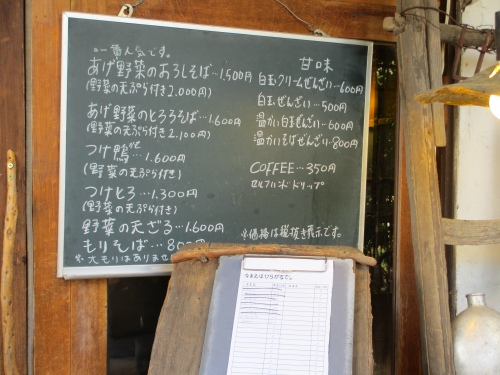 一番人気です。
あげ野菜のおろしそば…1,500円
(野菜の天ぷら付き2,000円)
あげ野菜のとろろそば…1,600円
(野菜の天ぷら付き2,100円)
つけ鴨…1,600円
(野菜の天ぷら付き)
つけとろ…1,300円
(野菜の天ぷら付き)
野菜の天ざる…1,600円
もりそば…800円
※大もりはありませ
甘味
白玉クリームぜんざい…600円
白玉ぜんざい…500円
温かい白玉ぜんざい…600円
温かいそばぜんざい…800円
COFFEE…350円
セルフハンドドリップ
※価格は税抜き表示です。
なまえはひらがなで。